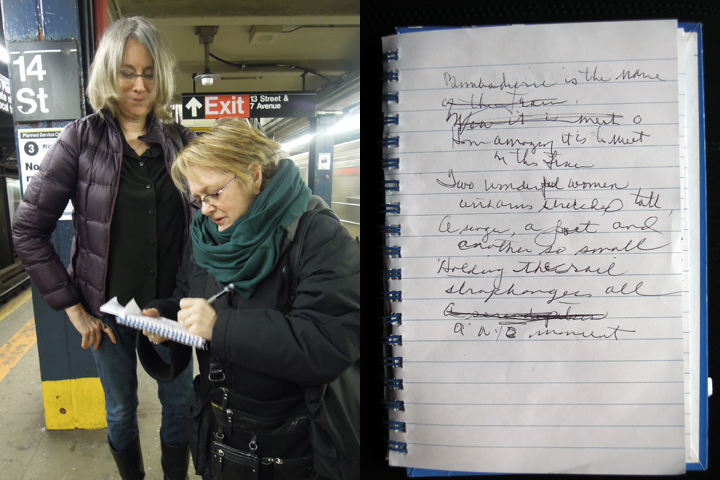 14
St
Exit
13 Street &
7 Avenue
Planned Service
3
No
is the name
of the train.
You it is meet
amazing it is to meet
on this line
Two wonderful women
with arms stretched tall
A singer, a poet and
another so small
Holding the rail
straphangers all
moment